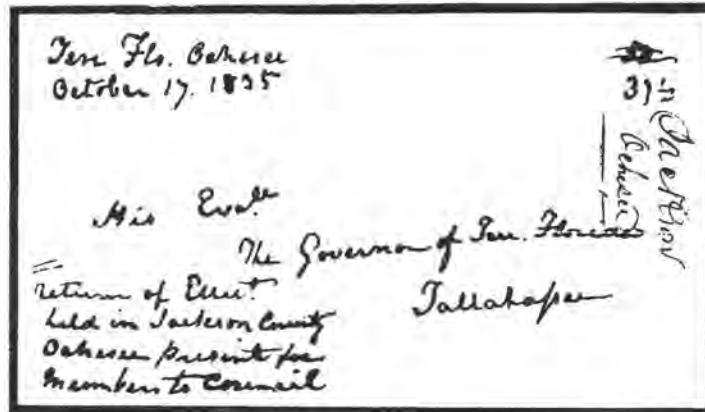 Terr Flo. Ochesee
October 17. 1835
37½
Jackson
Ochesee
His Excel
The Governor of Terr. Florida
Tallahassee
return of Elect.
held in Jackson County
Ochesee precinct for
Members to Council